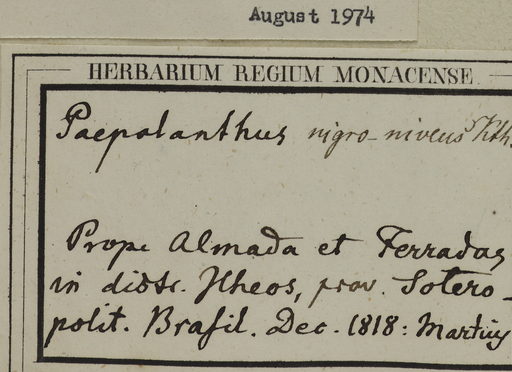 August 1974
HERBARIUM REGIUM MONACENSE
Paepalanthus nigro-niveus Kth.
Prope Almada et Ferradas
in distr. Ilheos, prov. Sotero-
polit. Brasil. Dec. 1818: Martius